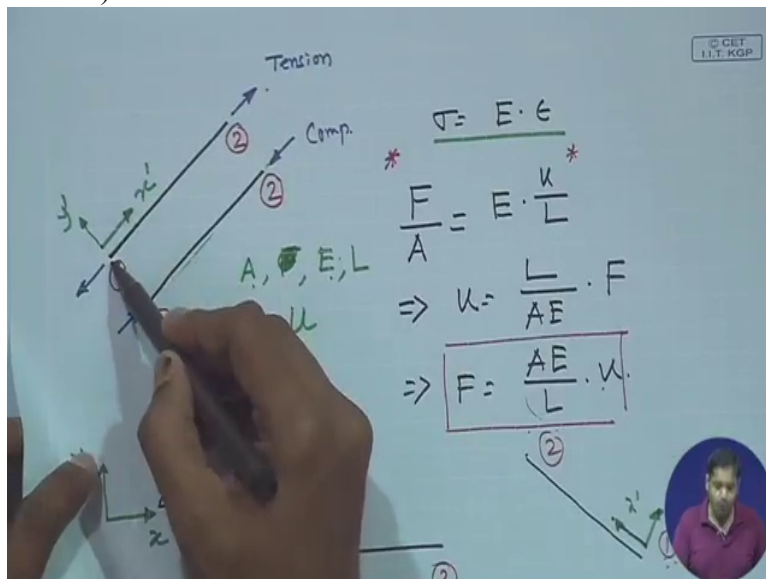 © CET
I.I.T. KGP
Tension
②
Comp.
②
x'
A, E, L
u
σ = E · ϵ
* F/A = E · u/L *
=> u = L/AE · F
=> F = AE/L · u.
②
x'
x
②